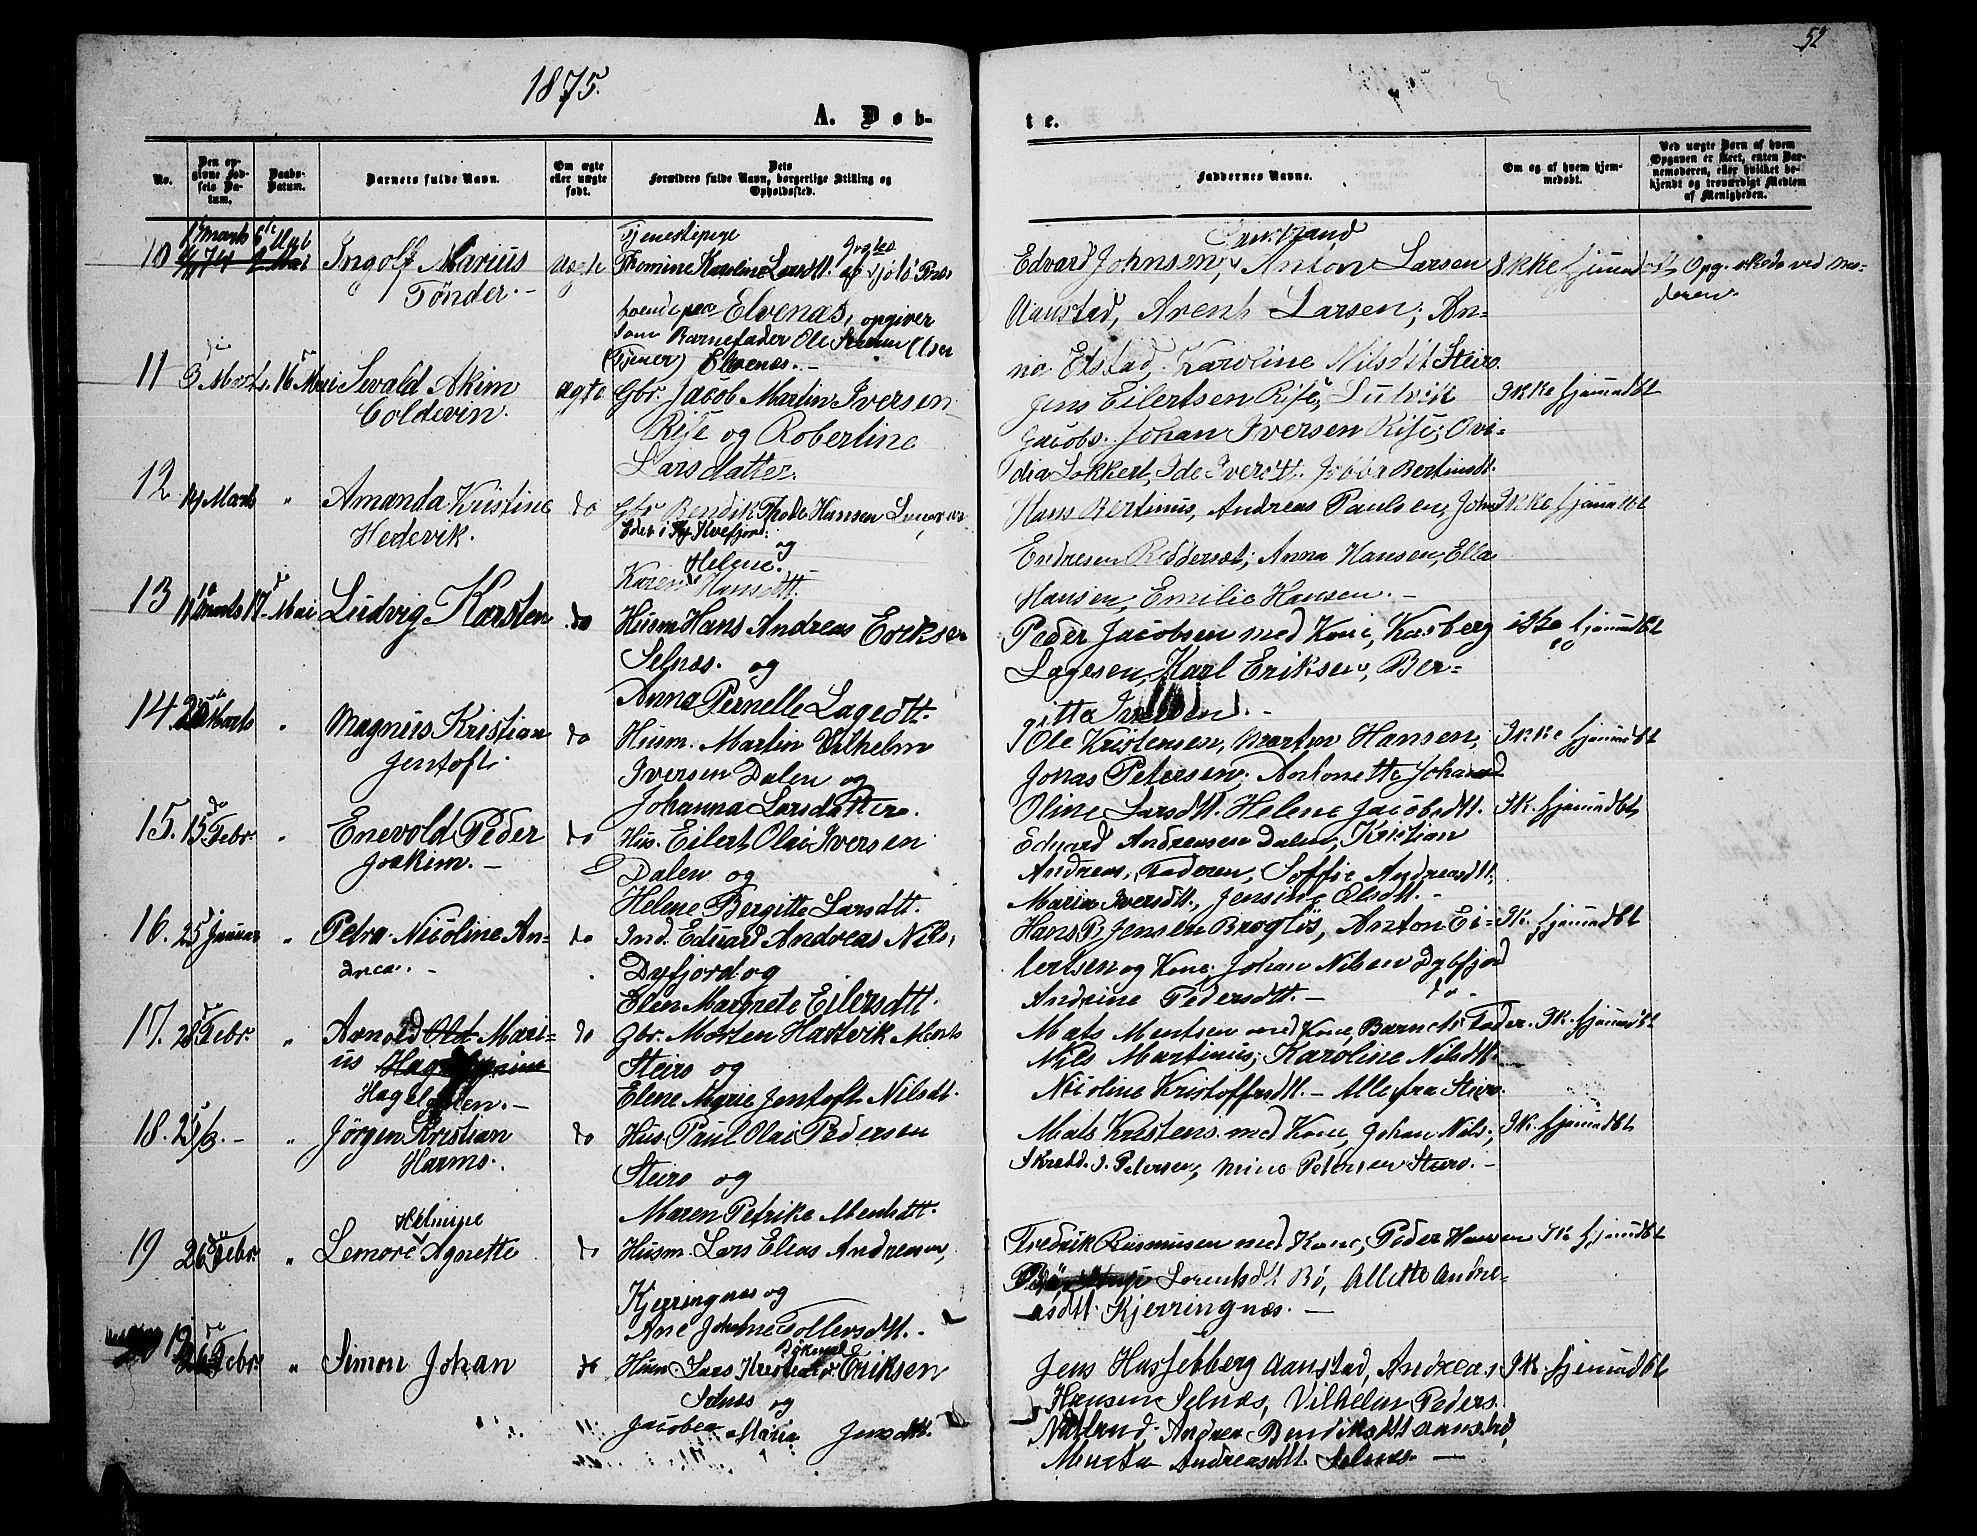 52
1875.
A. Døb-
te.
No.
Den op-
givne Fød-
sels Da-
tum.
Daabs-
Datum.
Barnets fulde Navn.
Om ægte
eller uægte
født.
Dets
Forældres fulde Navn, borgerlige Stilling og
Opholdssted.
Faddernes Navne.
Om og af hvem hjem-
medøbt.
Ved uægte Børn af hvem
Opgaven er skeet, enten Bar-
nemoderen, eller hvilket be-
kjendt og troværdigt Medlem
af Menigheden.
10
Ingolf Marius
Tønder. -
uægte
Tjenestepige
Thomine Karoline Larsdtt. af
Elvenæs, opgiver
som Barnefader Ole Olsen
(Tjener) Elvenæs. -
Edvard Johnsen, Anton Larsen
Aanstad, Arent Larsen; An-
ne Edstad, Karoline Nilsdtt Steiro.
Ikke hjemmedøbt
Opg. skede ved Mo-
deren.
11
3 Marts. 16 Mai
Sevald Akim
Coldevin.
ægte
Gbr. Jacob Martin Iversen
Rise og Robertine
Larsdatter.
Jens Eilertsen Rise, Ludvik
Jacobs. Johan Iversen Rise; Ovi-
dia Lokkert, Ide Iversdtt. Bertinsdt.
Ikke hjemmedøbt
12
14 Marts "
Amanda Kristine
Hedevik.
do
Gbr Bendik Thode Hansen
i Kvefjord:
og
Karen Helene Hansdtt.
Hans Bertinus, Andreas Paulsen, John
Endresen Anna Hansen, Ella
Hansen, Emilie Hansen. -
Ikke hjemmedøbt
13
Marts 17. Mai
Ludvig Karsten
do
Husm Hans Andreas Eriksen
Selnæs. og
Anna Pernelle Lagedtt.
Peder Jacobsen med Kone, Kasberg
Lagesen, Karl Eriksen, Ber-
gitte Iversen. -
ikke hjemmedøbt
14.
Marts "
Magnus Kristian
Jentoft.
do
Husm. Martin Vilhelm
Iversen Dalen og
Johanna Larsdatter.
Ole Kristensen, Martin Hansen,
Jonas Petersen, Antonette
Oline Larsdtt. Helene Jacobsdtt.
Ikke hjemmedøbt
15.
15 Febr. "
Enevold Peder
Joakim. -
do
Hus. Eilert Olai Iversen
Dalen og
Helene Bergitte Larsdtt.
Eduard Andreasen Dalen, Kristian
Andreas, Faderen, Soffie Andreasdtt,
Maria Iversdtt., Jensine Olsdtt. -
Ik. hjemmedøbt
16.
25 Januar "
Petra Nicoline An-
drea. -
do
Ind. Eduard Andreas Nils.
Dyfjord og
Elen Margrete Eilersdtt.
Hans P. Jensen Brogløs, Anton Ei-
lertsen og Kone, Johan Nilsen Dybfjord
Andrine Pedersdtt. -
Ik. hjemmedøbt
17.
28 Febr. "
Arnold Mari-
us
do
Gbr. Morten Hartvik Ments
Steiro og
Elene Marie Jentoft Nilsdt.
Mats Mentsen med Kone, Barnets Fader.
Nils Martinus, Karoline Nilsdtt.
Nicoline Kristoffersdtt. - Alle fra Steiro.
Ik. hjemmedøbt
18.
25/3. - "
Jørgen Kristian
Harms.
do
Hus. Paul Olai Pedersen
Steiro og
Maren Petrike Mentsdtt.
Mats Kristens. med Kone, Johan Nils.,
Skredd. J. Petersen, Mine Petersen Steiro. -
Ik. hjemmedøbt
19
26 Febr. "
Lemore Agnette
do
Husm. Lars Eleas Andresen,
Kjerringnes og
Ane Johanne Tollersdtt. -
Fredrik Rasmussen med Kone, Peder Hansen
Lorentsdtt Bø, Alette Andre-
asdtt. Kjerringnæs. -
Ik. hjemmedøbt
19
26 Febr. "
Simon Johan
do
Husm Lars Kristian Eriksen
Selnæs og
Jacobea Maria Jensdtt.
Jens Hasfebberg Aanstad, Andreas
Hansen Selnæs, Vilhelm Peders.
Natland, Andrea Bendiksdtt Aanstad,
Andreasdtt. Selnæs. -
Ik. hjemmedøbt